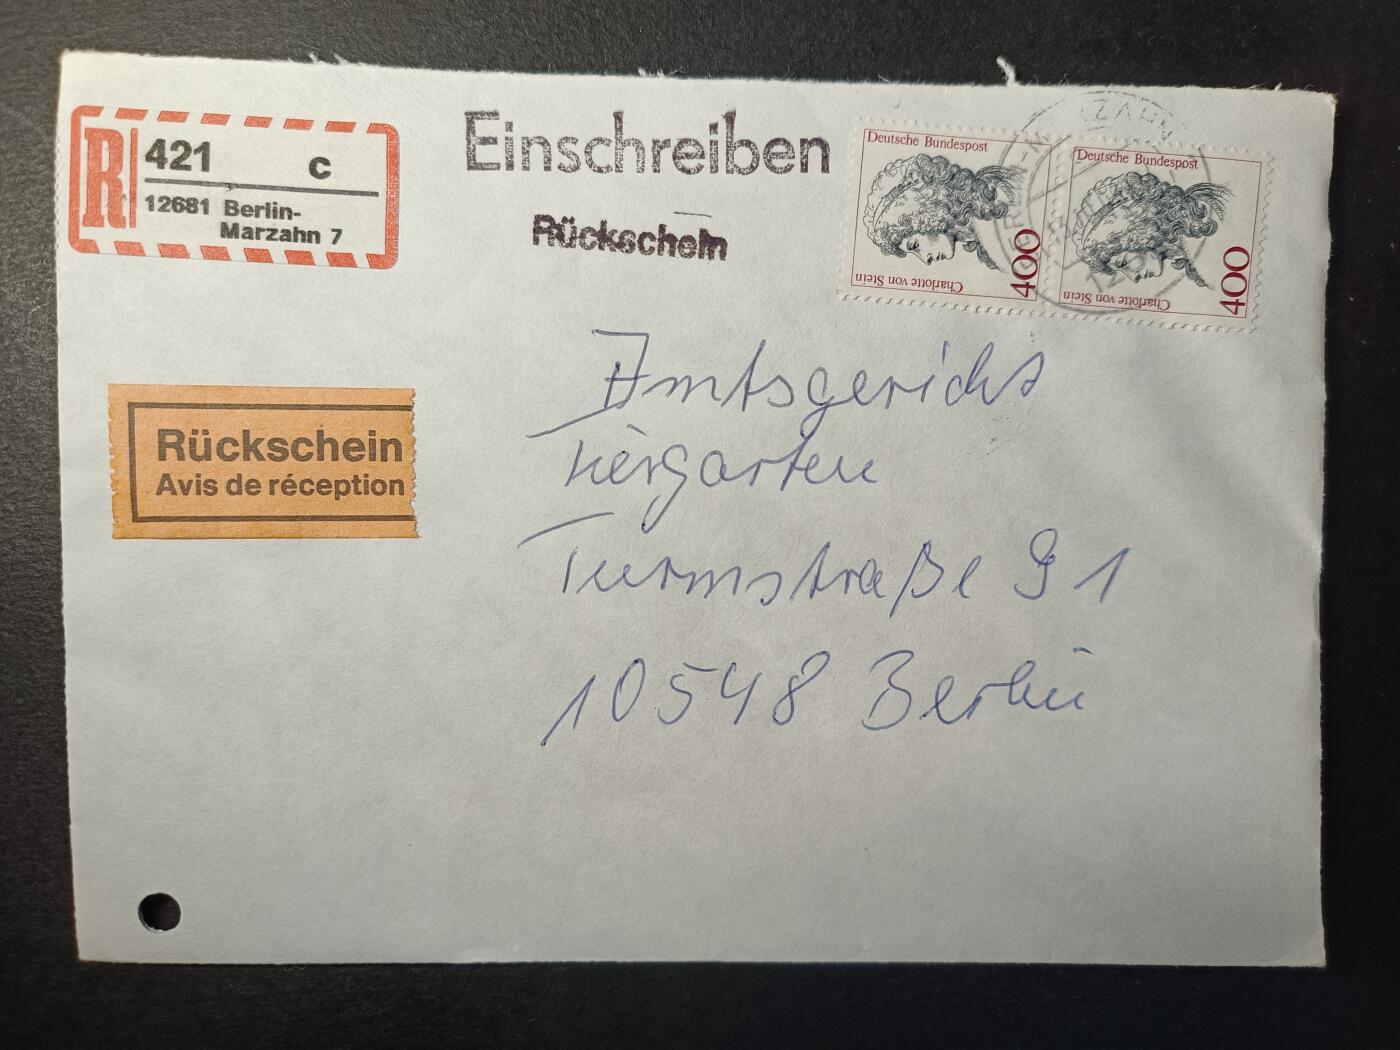 R 421 c
12681 Berlin-
Marzahn 7
Einschreiben
Rückschein
Deutsche Bundespost
Charlotte von Stein
400
Deutsche Bundespost
Charlotte von Stein
400
Rückschein
Avis de réception
Amtsgericht
Tiergarten
Turmstraße 91
10548 Berlin